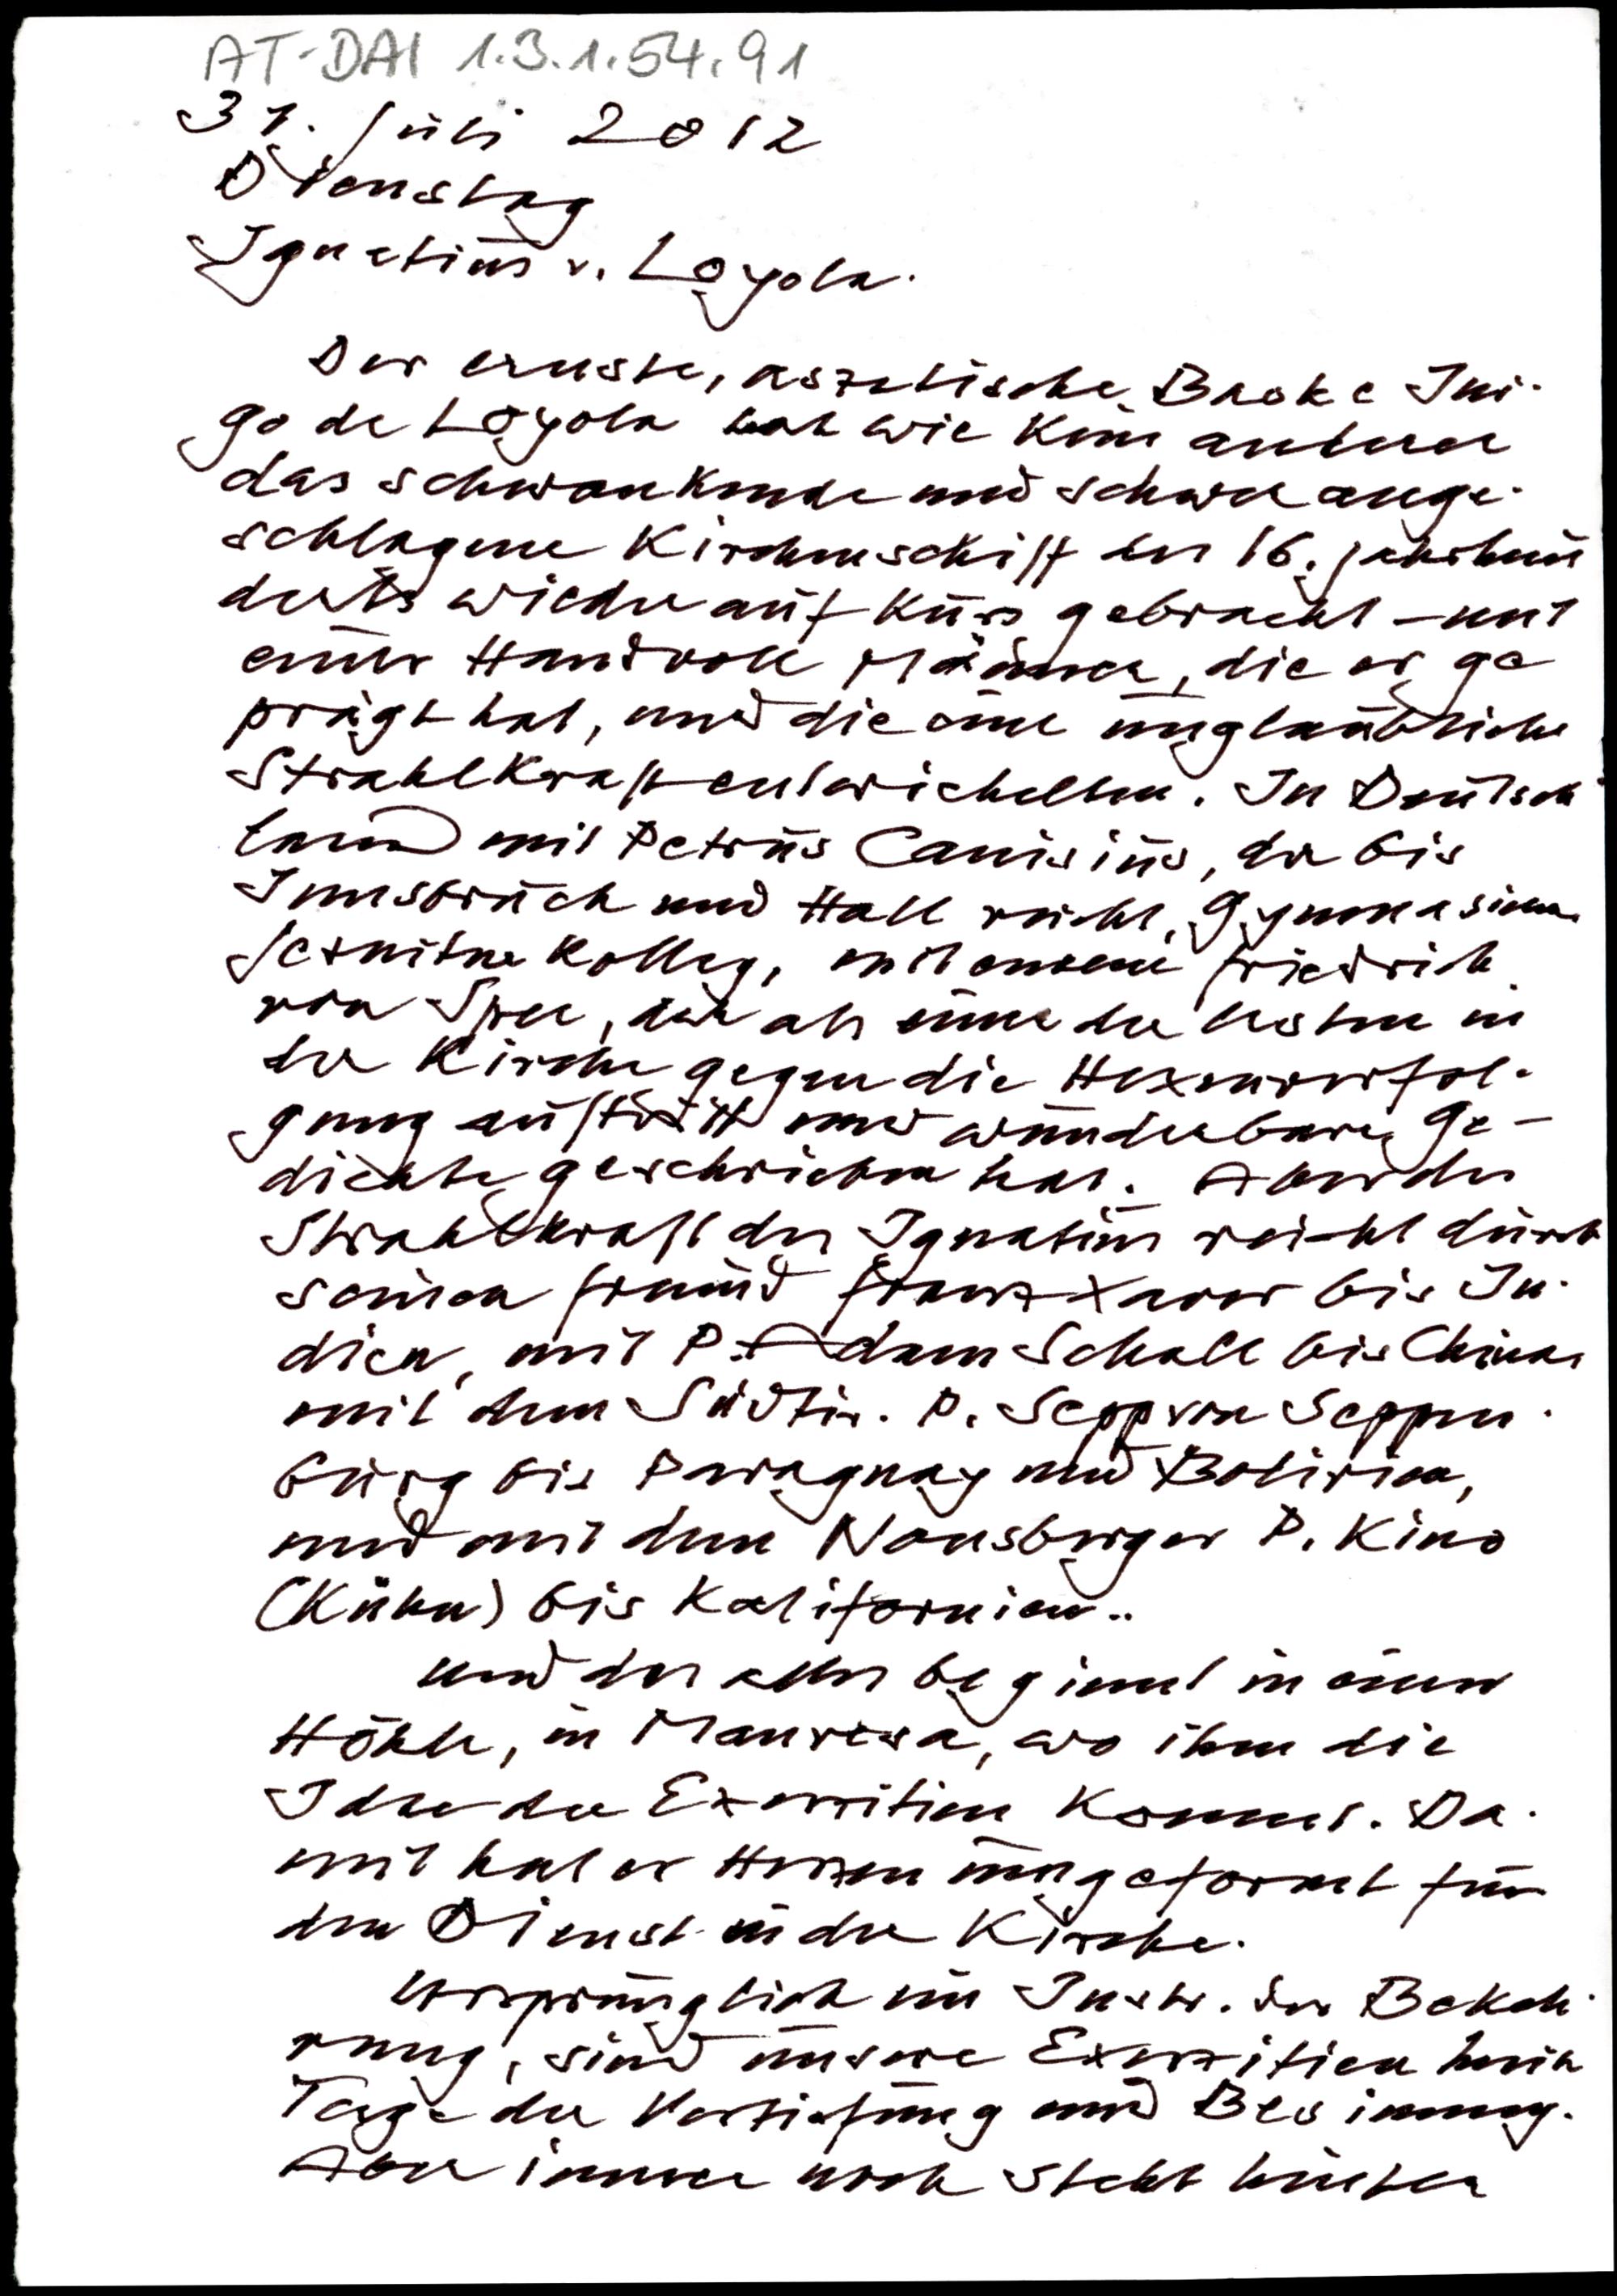 AT-DAI 1.3.1.54.91
31. Juli 2012
Dienstag
Ignatius v. Loyola.
Der ernste, aszetische Baske Ini-
go de Loyola hat wie kein anderer
das schwankende und schwer ange-
schlagene Kirchenschiff des 16. Jahrhun
derts wieder auf Kurs gebracht – mit
einer Handvoll Männer, die er ge
prägt hat, und die eine unglaubliche
Strahlkraft entwickelten. In Deutsch
land mit Petrus Canisius, der bis
Innsbruck und Hall reicht, Gymnasium
Jesuitenkolleg, mit einem Friedrich
von Spee, der als einer der ersten in
der Kirche gegen die Hexenverfol-
gung auftritt und wunderbare Ge-
dichte geschrieben hat. Aber die
Strahlkraft des Ignatius reicht durch
seinen Freund Franz Xaver bis In-
dien, mit P. Adam Schall bis China
mit dem Südtir. P. Sepp von Seppen-
burg bis Paraguay und Bolivien,
und mit dem Nonsberger P. Kino
(Kühn) bis Kalifornien..
Und das alles beginnt in einer
Höhle, in Manresa, wo ihm die
Idee der Exerzitien kommt. Da-
mit hat er Herzen umgeformt für
den Dienst in der Kirche.
Ursprünglich ein Instr. der Bekeh-
rung, sind unsere Exerzitien heute
Tage der Vertiefung und Besinnung.
Aber immer noch steht hinter